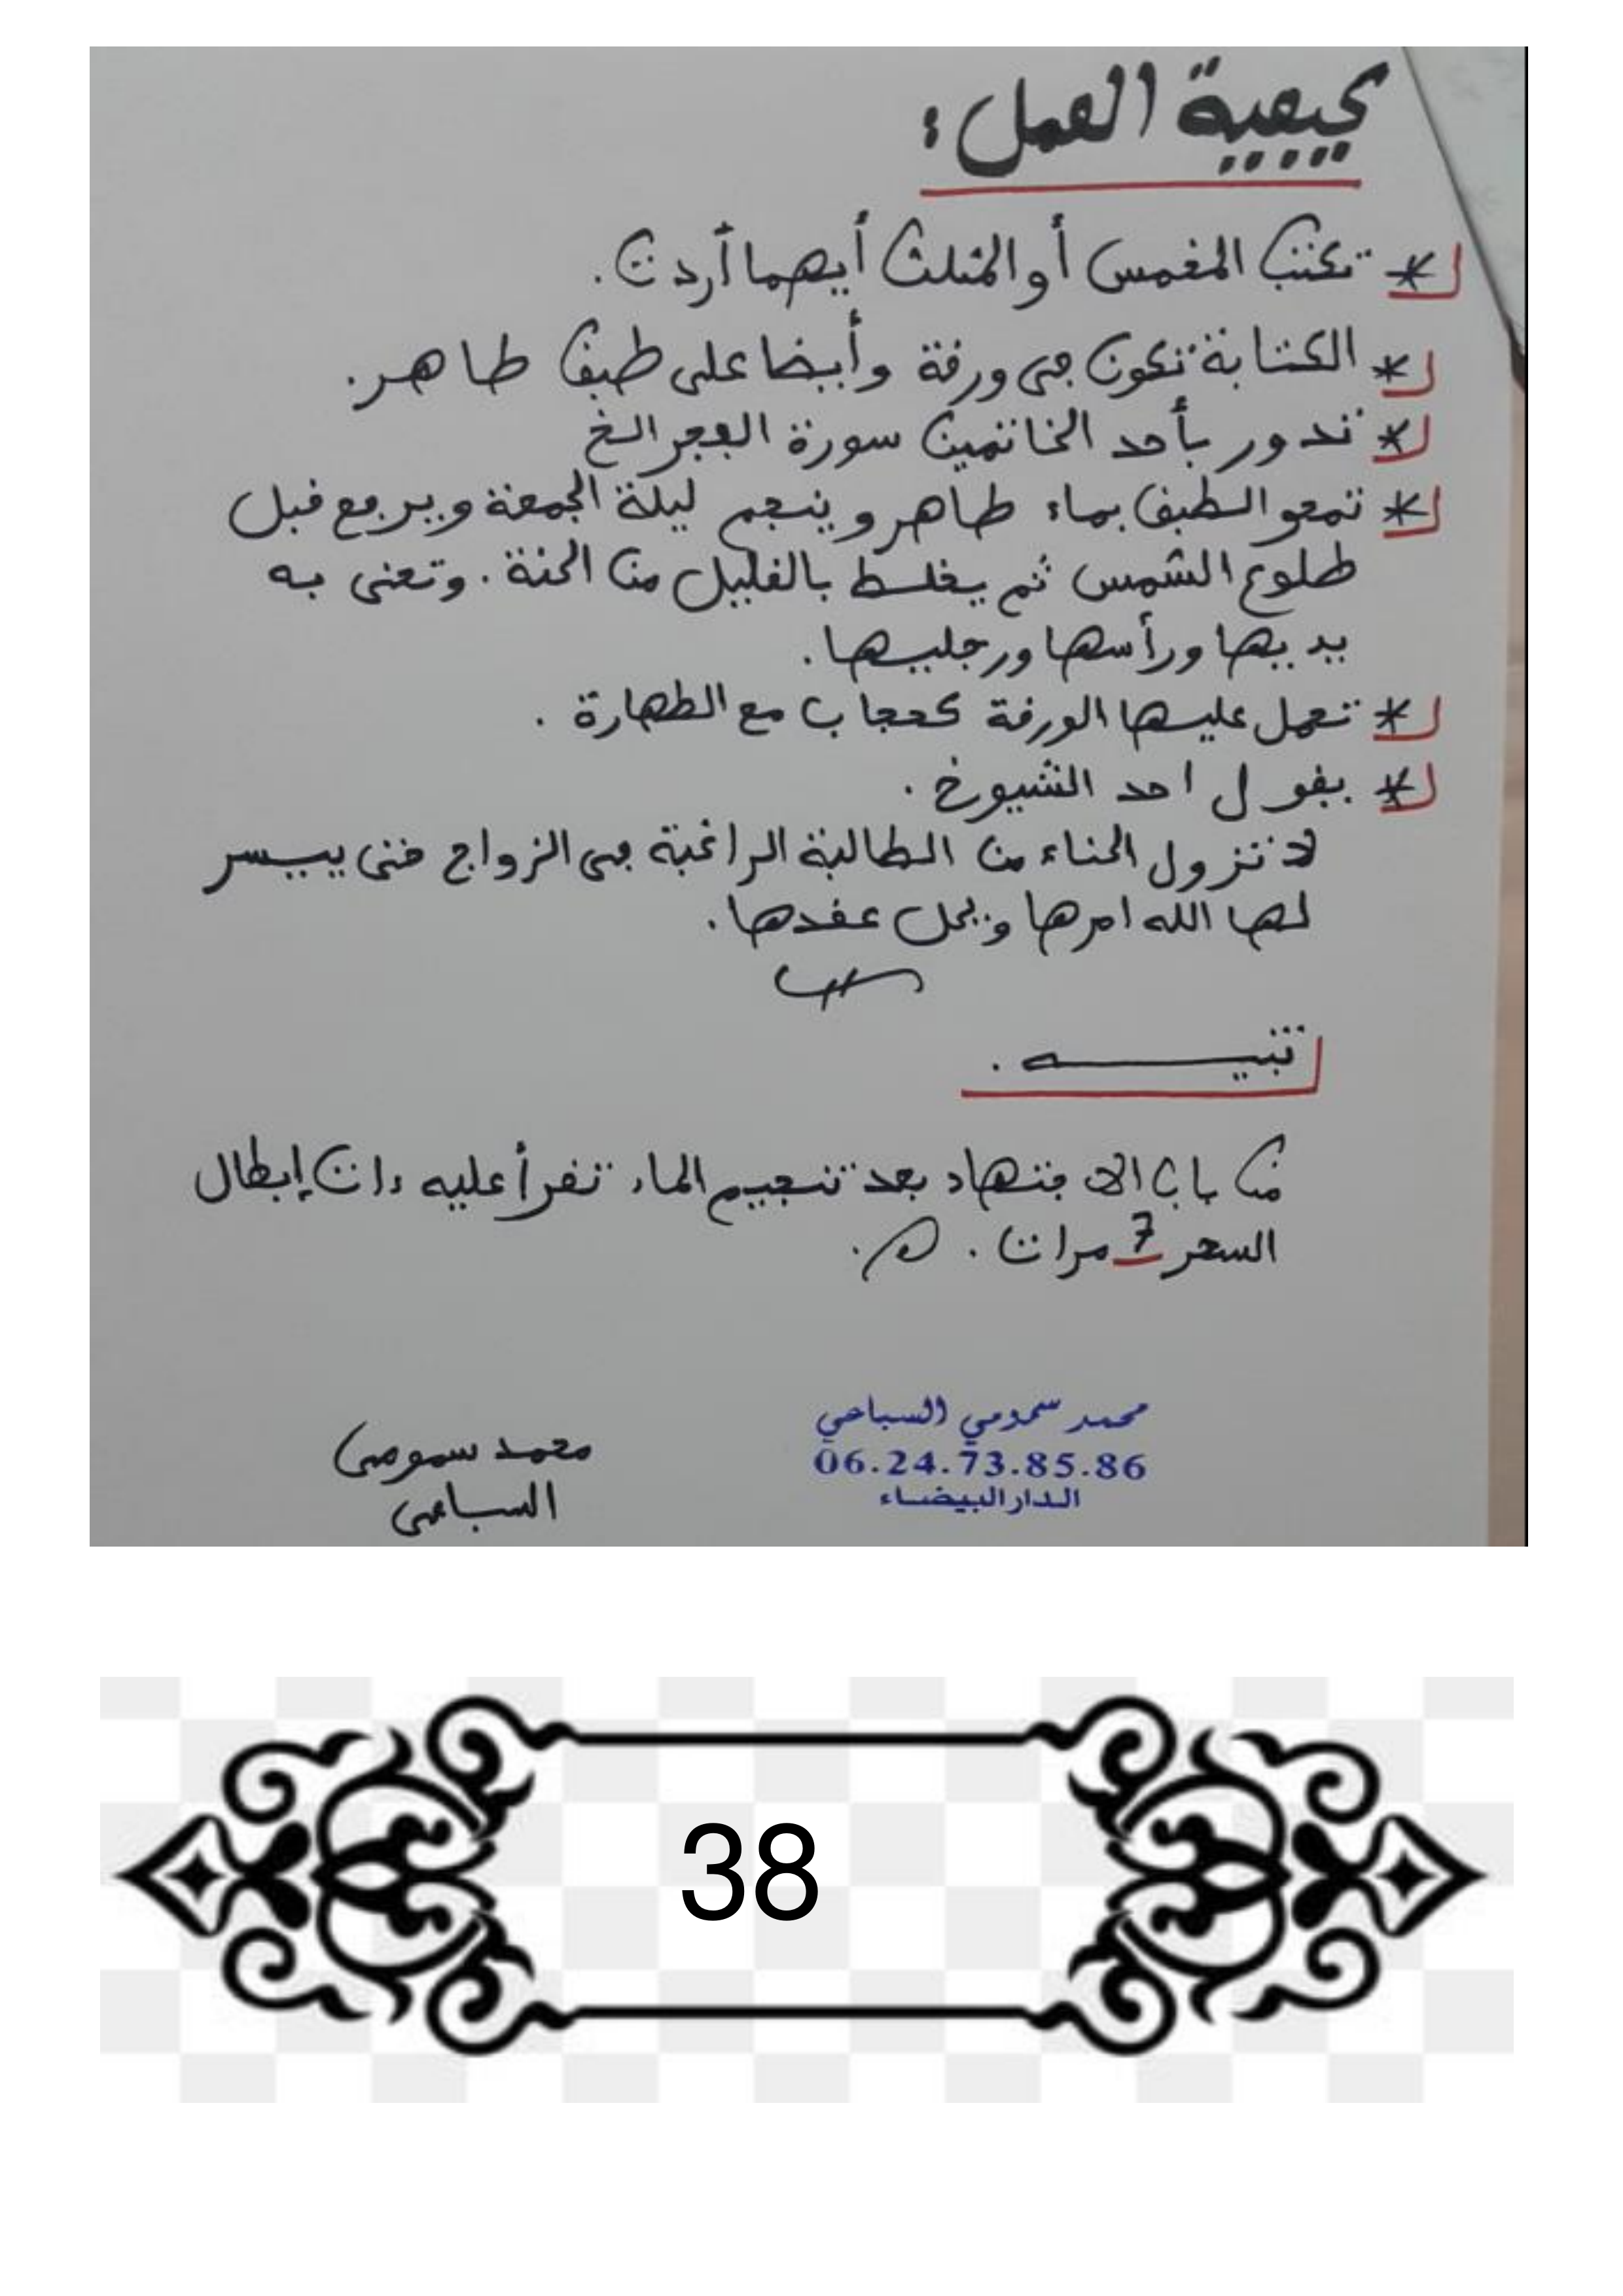 كيفية العمل :
* تكتب المخمس أو المثلث أيهما أردت .
* الكتابة تكون في ورقة وأيضا على طبق طاهر .
* تدور بأحد الخاتمين سورة الفجر الخ
* تمحو الطبق بماء طاهر وينجم ليلة الجمعة ويرجع قبل
طلوع الشمس ثم يخلط بالقليل من الحنة . وتحنى به
يديها ورأسها ورجليها .
* تحمل عليها الورقة كحجاب مع الطهارة .
* يقول احد الشيوخ .
لا تزول الحناء من الطالبة الراغبة في الزواج حتى ييسر
لها الله امرها ويحل عقدها .
تنبيه .
من باب الاجتهاد بعد تنجيم الماء تقرأ عليه ءات إبطال
السحر 7 مرات . اه .
محمد سمومي السباعي
06.24.73.85.86
الدار البيضاء
محمد سمومي
السباعي
38